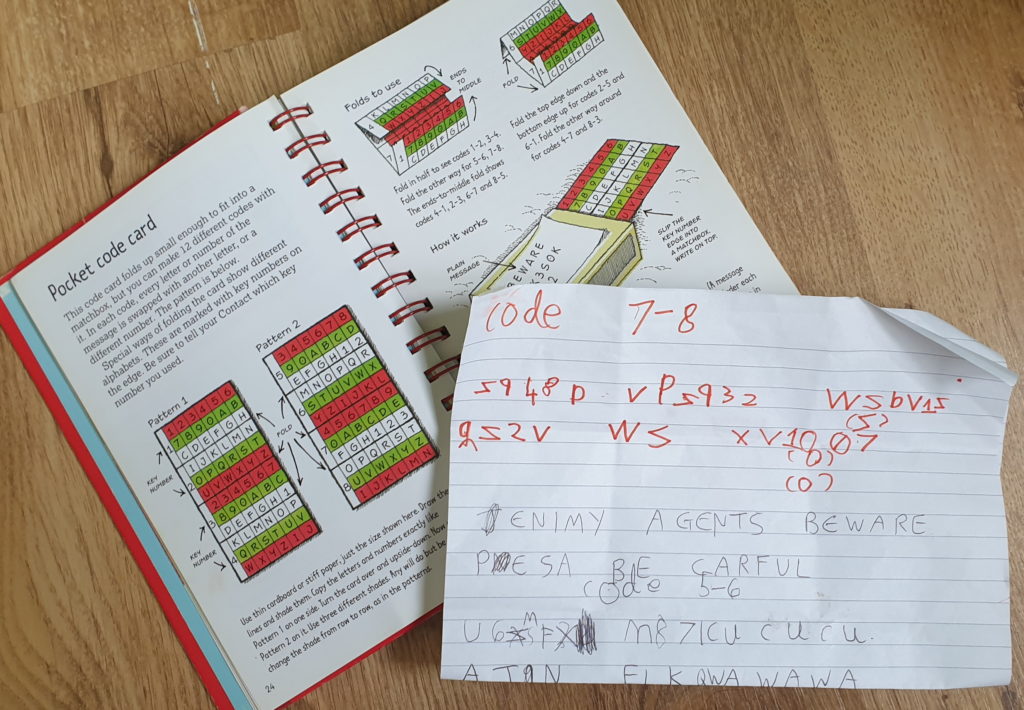 Pocket code card
This code card folds up small enough to fit into a
matchbox, but you can make 12 different codes with
it. In each code, every letter or number of the
message is swapped with another letter, or a
different number. The pattern is below.
Special ways of folding the card show different
alphabets. These are marked with key numbers on
the edge. Be sure to tell your Contact which key
number you used.
Pattern 1
1 2 3 4 5 6
7 8 9 0 A B
C D E F G H
I J K L M N
O P Q R S T
U V W X Y Z
2 3 4 5 6 7
8 9 0 A B C
D E F G H 1
K L M N O P
Q R S T U V
W X Y Z I J
KEY
NUMBER
KEY
NUMBER
FOLD
Pattern 2
3 4 5 6 7 8
9 0 A B C D
E F G H 1 2
M N O P Q R
S T U V W X
Y Z I J K L
4 5 6 7 8 9
0 A B C D E
F G H 1 2 3
O P Q R S T
U V W X Y Z
I J K L M N
Use thin cardboard or stiff paper, just the size shown here. Draw the
lines and shade them. Copy the letters and numbers exactly like
Pattern 1 on one side. Turn the card over and upside-down. Now
Pattern 2 on it. Use three different shades. Any will do but be
change the shade from row to row, as in the patterns.
24
Folds to use
ENDS
TO
MIDDLE
Fold in half to see codes 1-2, 3-4.
Fold the other way for 5-6, 7-8.
The ends-to-middle fold shows
codes 4-1, 2-3, 6-7 and 8-5.
FOLD
Fold the top edge down and the
bottom edge up for codes 2-5 and
6-1. Fold the other way around
for codes 4-7 and 8-3.
How it works
PLAIN
MESSAGE
BEWARE
SLIP THE
KEY NUMBER
EDGE INTO
A MATCHBOX.
WRITE ON TOP.
(A message
code 7-8
s948p vPs932 Wsbv1s
(5)
2s2v WS
(0)
(0)
ENIMY AGENTS BEWARE
ESA BE CARFUL
code 5-6